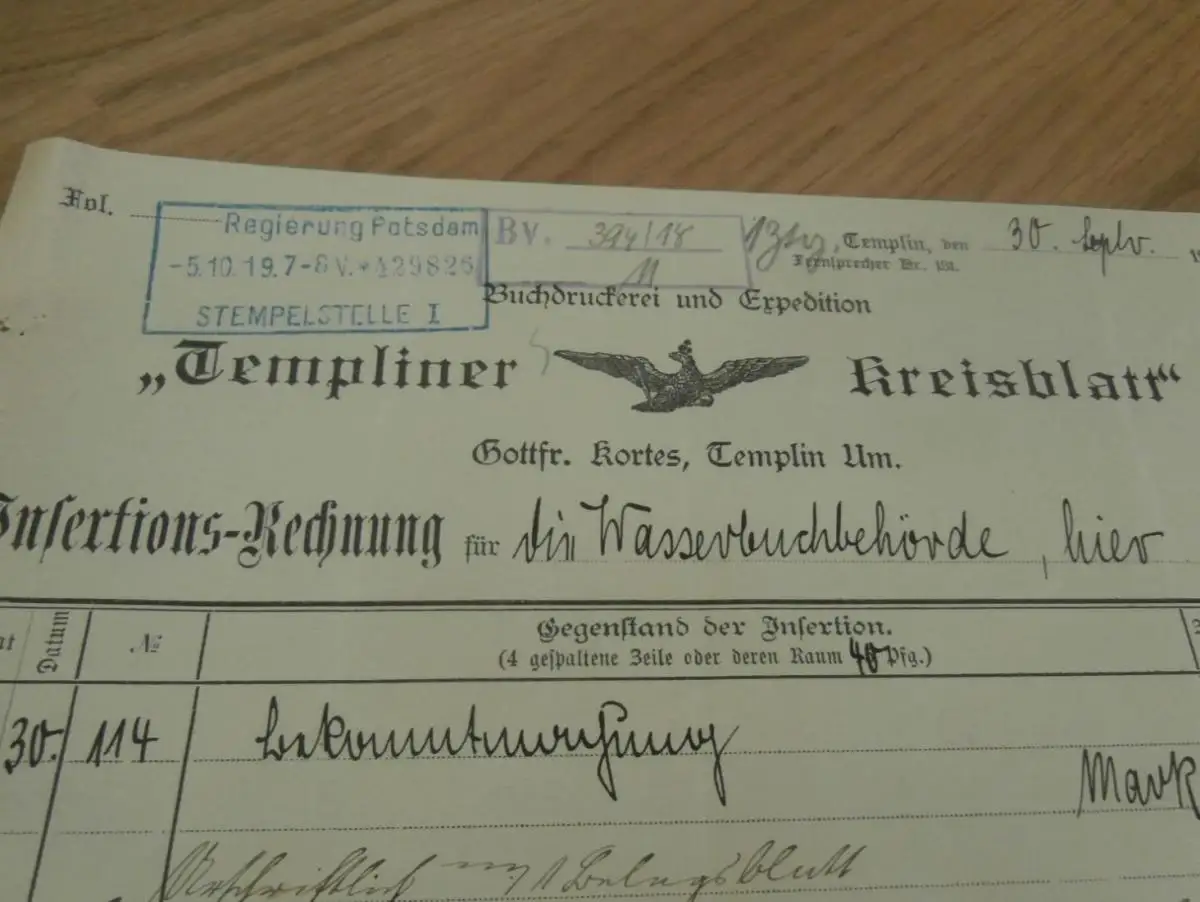 Fol.
Regierung Potsdam
-5.10.19.7-8V.*129826
STEMPELSTELLE I
BV. 394/18
11
Templin, den 30. Septr.
Fernsprecher Nr. 131.
Buchdruckerei und Expedition
„Templiner Kreisblatt“
Gottfr. Kortes, Templin Um.
Insertions-Rechnung für die Wasserbuchbehörde, hier
Datum № Gegenstand der Insertion.
(4 gespaltene Zeile oder deren Raum 40 Pfg.)
30. 114 Bekanntmachung
Mark
Urschriftlich mit 1 Belagsblatt